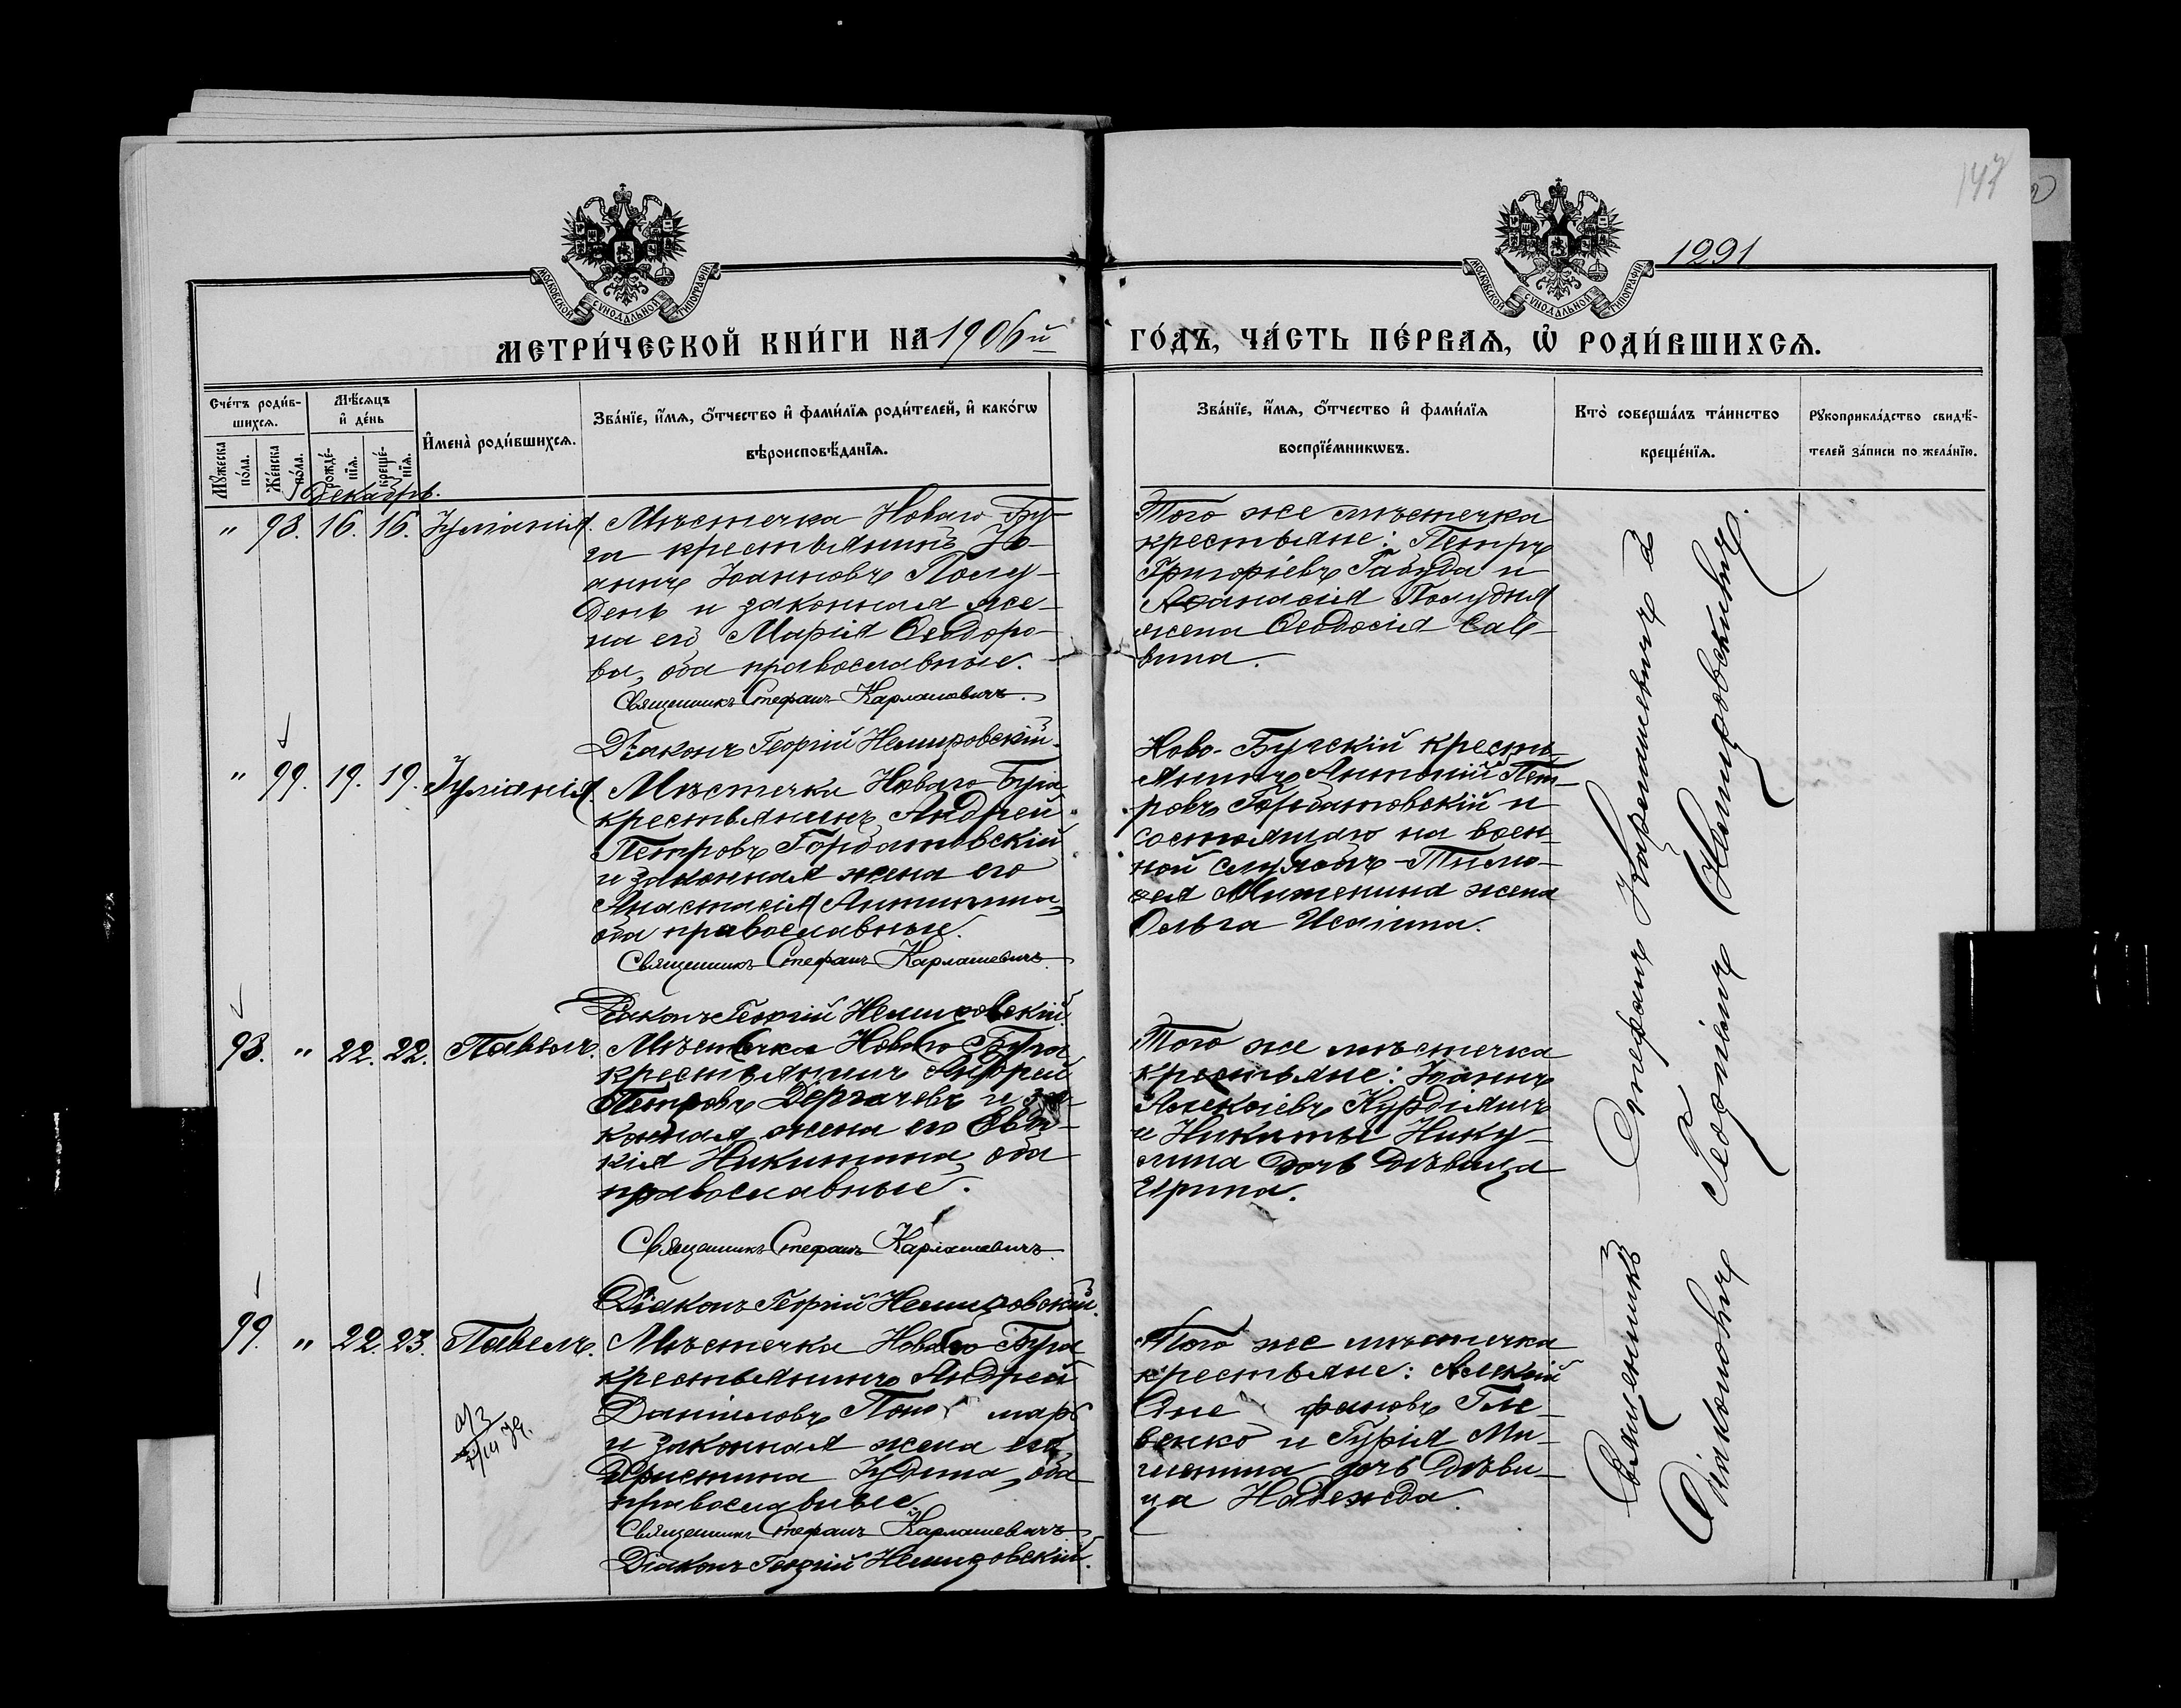 147
1291
МОСКОВСКОЙ СѴНОДАЛЬНОЙ ТИПОГРАФІИ
МОСКОВСКОЙ СѴНОДАЛЬНОЙ ТИПОГРАФІИ
МЕТРИ́ЧЕСКОЙ КНИ́ГИ НА 1906й ГО́ДЪ, ЧА́СТЬ ПЕ́РВАѦ, Ѡ҆ РОДИ́ВШИХСѦ.
Сче́тъ роди́в-
шихсѧ.
Мꙋжеска по́ла.
Же́нска по́ла.
Мѣ́сѧцъ
и҆ де́нь
рожде́-
нїѧ.
креще́-
нїѧ.
И҆мена̀ роди́вшихсѧ.
Зва́нїе, и҆́мѧ, ѻ҆́тчество и҆ фами́лїѧ роди́телей, и҆ како́гѡ
вѣроисповѣ́данїѧ.
Зва́нїе, и҆́мѧ, ѻ҆́тчество и҆ фами́лїѧ
воспрїе́мникѡвъ.
Кто̀ соверша́лъ та́инство
креще́нїѧ.
Рꙋкоприкла́дство свидѣ́-
телей за́писи по жела́нїю.
Декабрь.
" 98. 16. 16. Іуліанія.
Мѣстечка Новаго Бу-
га крестьянинъ Іо-
аннъ Іоанновъ Полу-
день и законная же-
на его Марія Ѳеодоро-
ва, оба православные.
Священникъ Стефанъ Карлашевичъ.
Діаконъ Георгій Немировскій.
Того же мѣстечка
крестьяне: Петръ
Григоріевъ Габуда и
Аѳанасія Полудня
жена Ѳеодосія Сав-
вина.
" 99. 19. 19. Іуліанія.
Мѣстечка Новаго Буга
крестьянинъ Андрей
Петровъ Горбатовскій
и законная жена его
Анастасія
оба православные.
Священникъ Стефанъ Карлашевичъ.
Діаконъ Георгій Немировскій.
Ново-Бугскій кресть-
янинъ Антоній Пет-
ровъ Горбатовскій и
состоящаго на воен-
ной службѣ Тимо-
фея жена
Ольга
98. " 22. 22. Павелъ.
Мѣстечка Новаго Буга
крестьянинъ Андрей
Петровъ Дергачевъ и за-
конная жена его Евдо-
кія Никитина, оба
православные.
Священникъ Стефанъ Карлашевичъ.
Діаконъ Георгій Немировскій.
Того же мѣстечка
крестьяне: Іоаннъ
Алексіевъ
и Никиты Нику-
лина дочь дѣвица
Ирина.
99. " 22. 23. Павелъ.
Мѣстечка Новаго Буга
крестьянинъ Андрей
Даніиловъ Поно марь
и законная жена его
Христина Іудина, оба
православные.
Священникъ Стефанъ Карлашевичъ
Діаконъ Георгій Немировскій.
Того же мѣстечка
крестьяне: Алексій
Оне фановъ Гле-
венко и Гурія Ми-
шенина дочь дѣви-
ца Надежда.
Священникъ Стефанъ Карлашевичъ съ
Діакономъ Георгіемъ Немировскимъ.